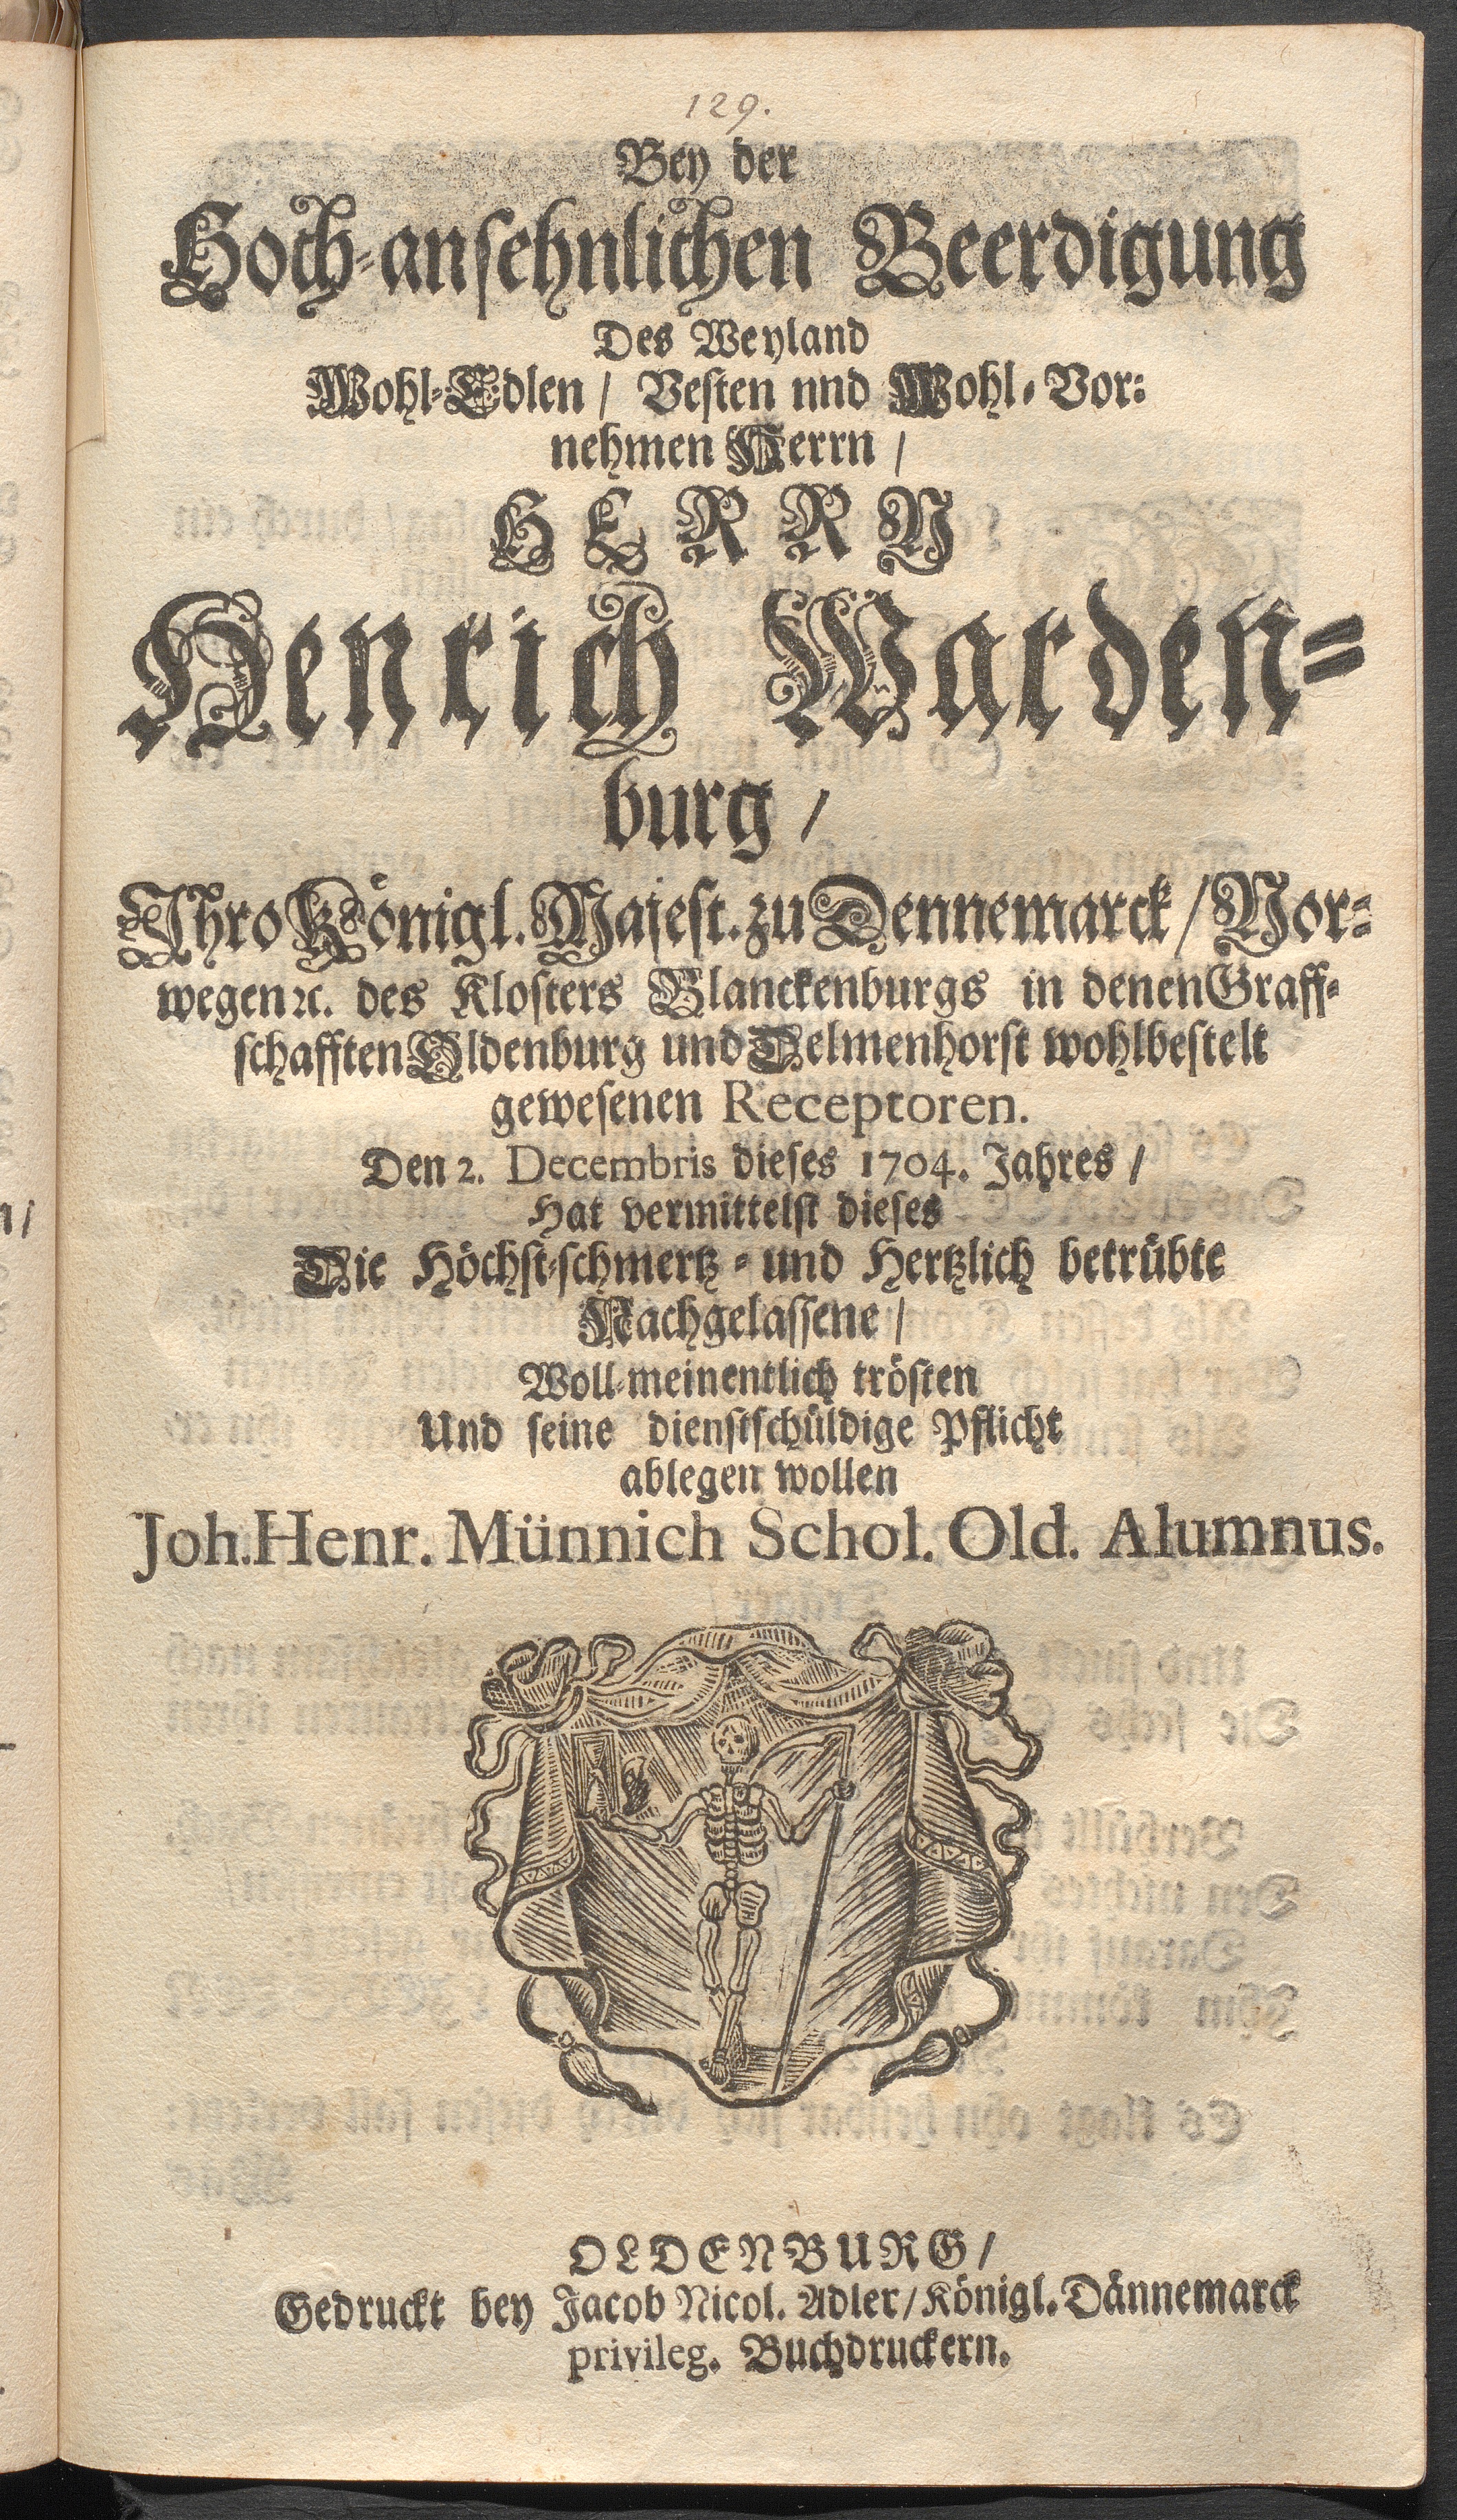 129.
Bey der
Hoch-ansehnlichen Beerdigung
Des Weyland
Wohl-Edlen / Vesten nnd Wohl-Vor-
nehmen Herrn /
HERRN
Henrich Warden-
burg /
Ihro Königl. Majest. zu Dennemarck / Nor-
wegen ꝛc. des Klosters Blanckenburgs in denen Graff-
schafften Oldenburg und Delmenhorst wohlbestelt
gewesenen Receptoren.
Den 2. Decembris dieses 1704. Jahres /
Hat vermittelst dieses
Die Höchst-schmertz- und Hertzlich betrübte
Nachgelassene /
Woll-meinentlich trösten
Und seine dienstschüldige Pflicht
ablegen wollen
Joh. Henr. Münnich Schol. Old. Alumnus.
OLDENBURG /
Gedruckt bey Jacob Nicol. Adler / Königl. Dännemarck
privileg. Buchdruckern.